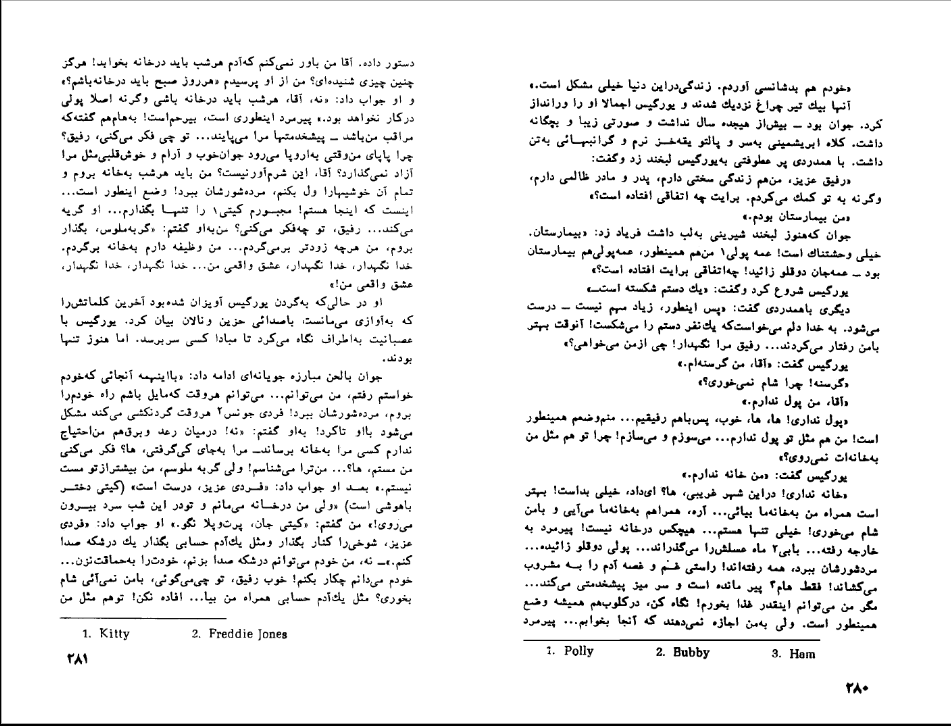 «خودم هم بدشانسی آوردم. زندگی‌دراین دنیا خیلی مشکل است.»
آنها بیك تیر چراغ نزدیك شدند و یورگیس اجمالا او را ورانداز
کرد. جوان بود ــ بیش‌از هیجده سال نداشت و صورتی زیبا و بچگانه
داشت. کلاه ابریشمینی به‌سر و پالتو یقه‌خــز نرم و گرانبهــائی به‌تن
داشت. با همدردی پر عطوفتی به‌یورگیس لبخند زد وگفت:
«رفیق عزیز، من‌هم زندگی سختی دارم، پدر و مادر ظالمی دارم،
وگرنه به تو کمك می‌کردم. برایت چه اتفاقی افتاده است؟»
«من بیمارستان بودم.»
جوان که‌هنوز لبخند شیرینی به‌لب داشت فریاد زد: «بیمارستان.
خیلی وحشتناك است! عمه پولی۱ من‌هم همینطور، عمه‌پولی‌هم بیمارستان
بود ــ عمه‌جان دوقلو زائید! چه‌اتفاقی برایت افتاده است؟»
یورگیس شروع کرد وگفت: «یك دستم شکسته است...»
دیگری باهمدردی گفت: «پس اینطور، زیاد مهم نیست ــ درست
می‌شود. به خدا دلم می‌خواست‌که یك‌نفر دستم را می‌شکست! آنوقت بهتر
بامن رفتار می‌کردند... رفیق مرا نگهدار! چی ازمن می‌خواهی؟»
یورگیس گفت: «آقا، من گرسنه‌ام.»
«گرسنه! چرا شام نمی‌خوری؟»
«آقا، من پول ندارم.»
«پول نداری! ها، ها، خوب، پس‌باهم رفیقیم... منم‌وضعم همینطور
است! من هم مثل تو پول ندارم... می‌سوزم و می‌سازم! چرا تو هم مثل من
به‌خانه‌ات نمی‌روی؟»
یورگیس گفت: «من خانه ندارم.»
«خانه نداری! دراین شهر غریبی، ها؟ ای‌داد، خیلی بداست! بهتر
است همراه من به‌خانه‌ما بیائی... آره، همراهم به‌خانه‌ما می‌آیی و بامن
شام می‌خوری! خیلی تنهــا هستم... هیچکس درخانه نیست! پیرمرد به
خارجه رفته... بابی۲ ماه عسلش‌را می‌گذراند... پولی دوقلو زائیده...
مردشورشان ببرد، همه رفته‌اند! راستی غــم و غصه آدم را بــه مشروب
می‌کشاند! فقط هام۳ پیر مانده است و سر میز پیشخدمتی می‌کند...
مگر من می‌توانم اینقدر غذا بخورم! نگاه کن، درکلوب‌هم همیشه وضع
همینطور است. ولی به‌من اجازه نمی‌دهند که آنجا بخوابم... پیرمرد
1. Polly 2. Bubby 3. Ham
۲۸۰
دستور داده. آقا من باور نمی‌کنم که‌آدم هرشب باید درخانه بخوابد! هرگز
چنین چیزی شنیده‌ای؟ من از او پرسیدم «هرروز صبح باید درخانه‌باشم؟»
و او جواب داد: «نه، آقا، هرشب باید درخانه باشی وگرنه اصلا پولی
درکار نخواهد بود.» پیرمرد اینطوری است، بیرحم‌است! به‌هام‌هم گفته‌که
مراقب من‌باشد ــ پیشخدمتها مرا می‌پایند... تو چی فکر می‌کنی، رفیق؟
چرا پاپای من‌وقتی به‌اروپا می‌رود جوان‌خوب و آرام و خوش‌قلبی‌مثل مرا
آزاد نمی‌گذارد؟ آقا، این شرم‌آورنیست؟ من باید هرشب به‌خانه بروم و
تمام آن خوشیهارا ول بکنم، مرده‌شورشان ببرد! وضع اینطور است...
اینست که اینجا هستم! مجبــورم کیتی۱ را تنهــا بگذارم... او گریه
می‌کند... رفیق، تو چه‌فکر می‌کنی؟ من‌به‌او گفتم: «گربه‌ملوس، بگذار
بروم، من هرچه زودتر برمی‌گردم... من وظیفه دارم به‌خانه برگردم.
خدا نگهدار، خدا نگهدار، عشق واقعی من... خدا نگهدار، خدا نگهدار،
عشق واقعی من!»
او در حالی‌که به‌گردن یورگیس آویزان شده‌بود آخرین کلماتش‌را
که به‌آوازی می‌مانست، باصدائی حزین ونالان بیان کرد. یورگیس با
عصبانیت به‌اطراف نگاه می‌کرد تا مبادا کسی سربرسد. اما هنوز تنها
بودند.
جوان بالحن مبارزه جویانه‌ای ادامه داد: «بااینهمه آنجائی که‌خودم
خواستم رفتم، من می‌توانم... می‌توانم هروقت که‌مایل باشم راه خودم‌را
بروم، مرده‌شورشان ببرد! فردی جونس۲ هروقت گردنکشی می‌کند مشکل
می‌شود بااو تاکرد! به‌او گفتم: «نه! درمیان رعد وبرق‌هم من‌احتیاج
ندارم کسی مرا به‌خانه برساند ــ مرا به‌جای کی‌گرفتی، ها؟ فکر می‌کنی
من مستم، ها؟... من‌ترا می‌شناسم! ولی گربه ملوسم، من بیشترازتو مست
نیستم.» بعــد او جواب داد: «فــردی عزیز، درست است» (کیتی دختــر
باهوشی است) «ولی من درخــانه می‌مانم و تودر این شب سرد بیــرون
می‌روی!» من گفتم: «کیتی جان، پرت‌وپلا نگو.» او جواب داد: «فردی
عزیز، شوخی‌را کنار بگذار ومثل یك‌آدم حسابی بگذار یك درشکه صدا
کنم.» ــ نه، من خودم می‌توانم درشکه صدا بزنم، خودت‌را به‌حماقت‌نزن...
خودم می‌دانم چکار بکنم! خوب رفیق، تو چی‌می‌گوئی، بامن نمی‌آئی شام
بخوری؟ مثل یك‌آدم حسابی همراه من بیا... افاده نکن! توهم مثل من
1. Kitty 2. Freddie Jones
۲۸۱